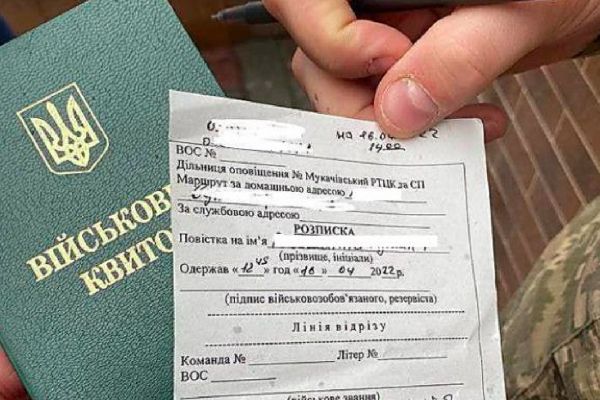 ВІЙСЬКОВ
КВИТО
О.
на 16.04 22
О. 14.00
ВОС №
Дільниця оповіщення № Мукачівський РТЦК та СП
Маршрут за домашньою адресою
За службовою адресою
РОЗПИСКА
Повістка на ім'я
(прізвище, ініціали)
Одержав «12 45» год «16» 04 2022р.
(підпис військовозобов'язаного, резервіста)
Лінія відрізу
Команда № Літер №
ВОС
(військове звання)